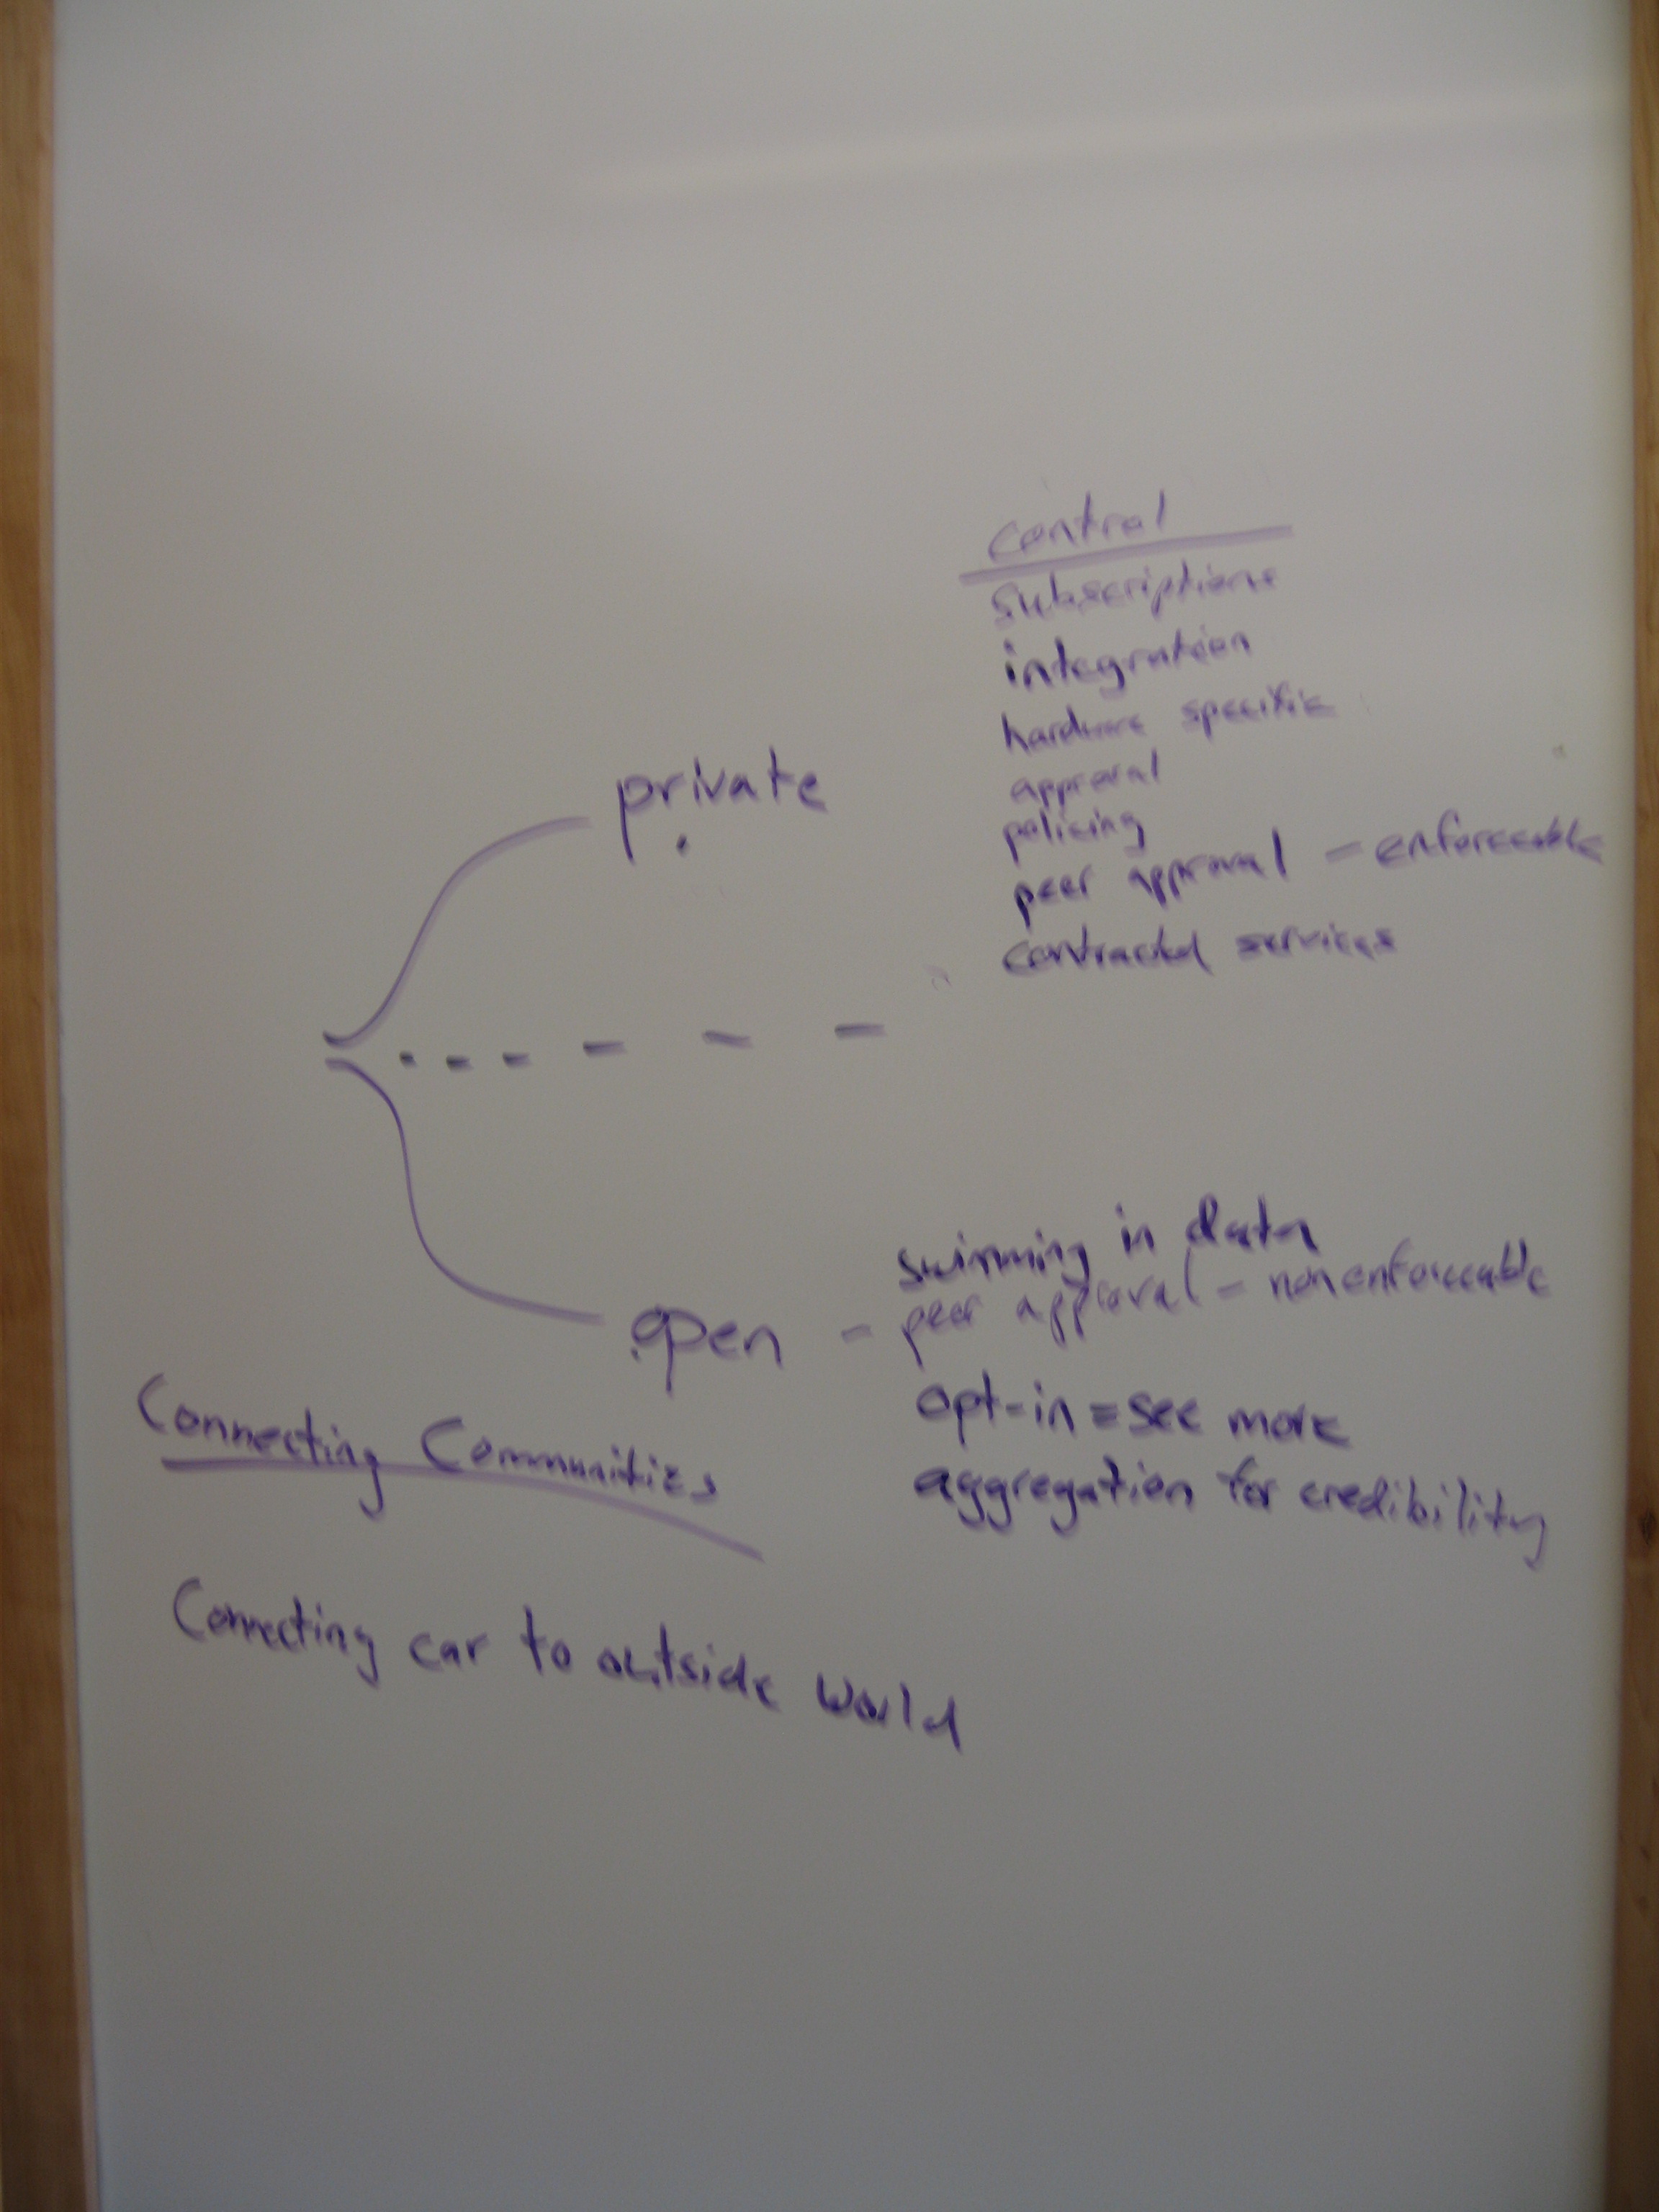 control
subscriptions
integration
hardware specific
approval
policing
private
peer approval - enforceable
contracted services
swimming in data
peer approval - nonenforceable
open -
opt-in = see more
aggregation for credibility
Connecting Communities
Connecting car to outside world